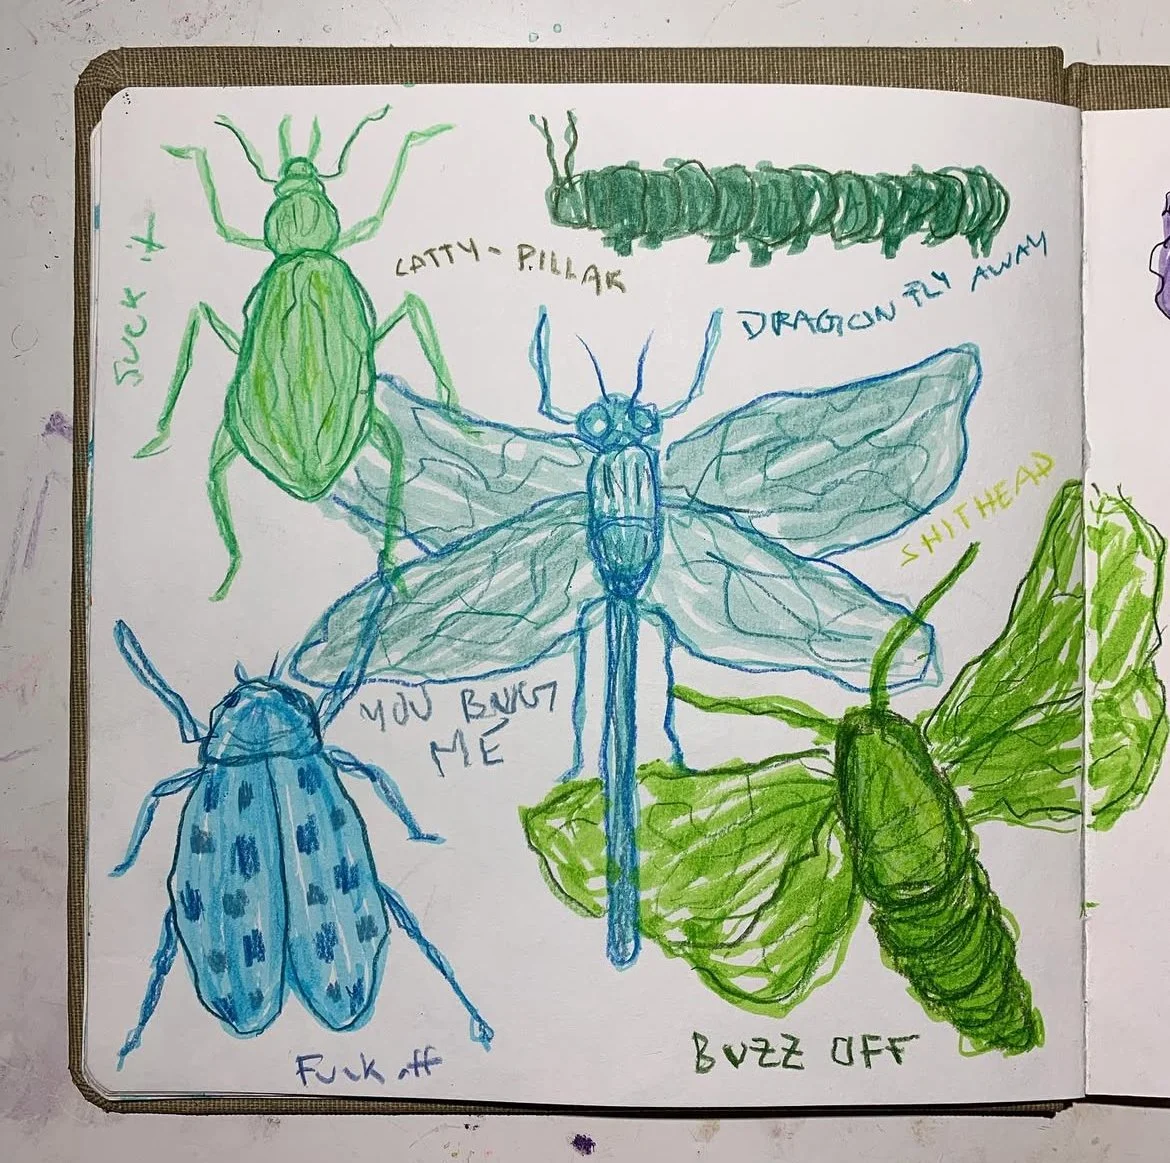 SUCK it
CATTY-PILLAR
DRAGON FLY AWAY
SHITHEAD
YOU BUG
ME
BUZZ OFF
Fuck off